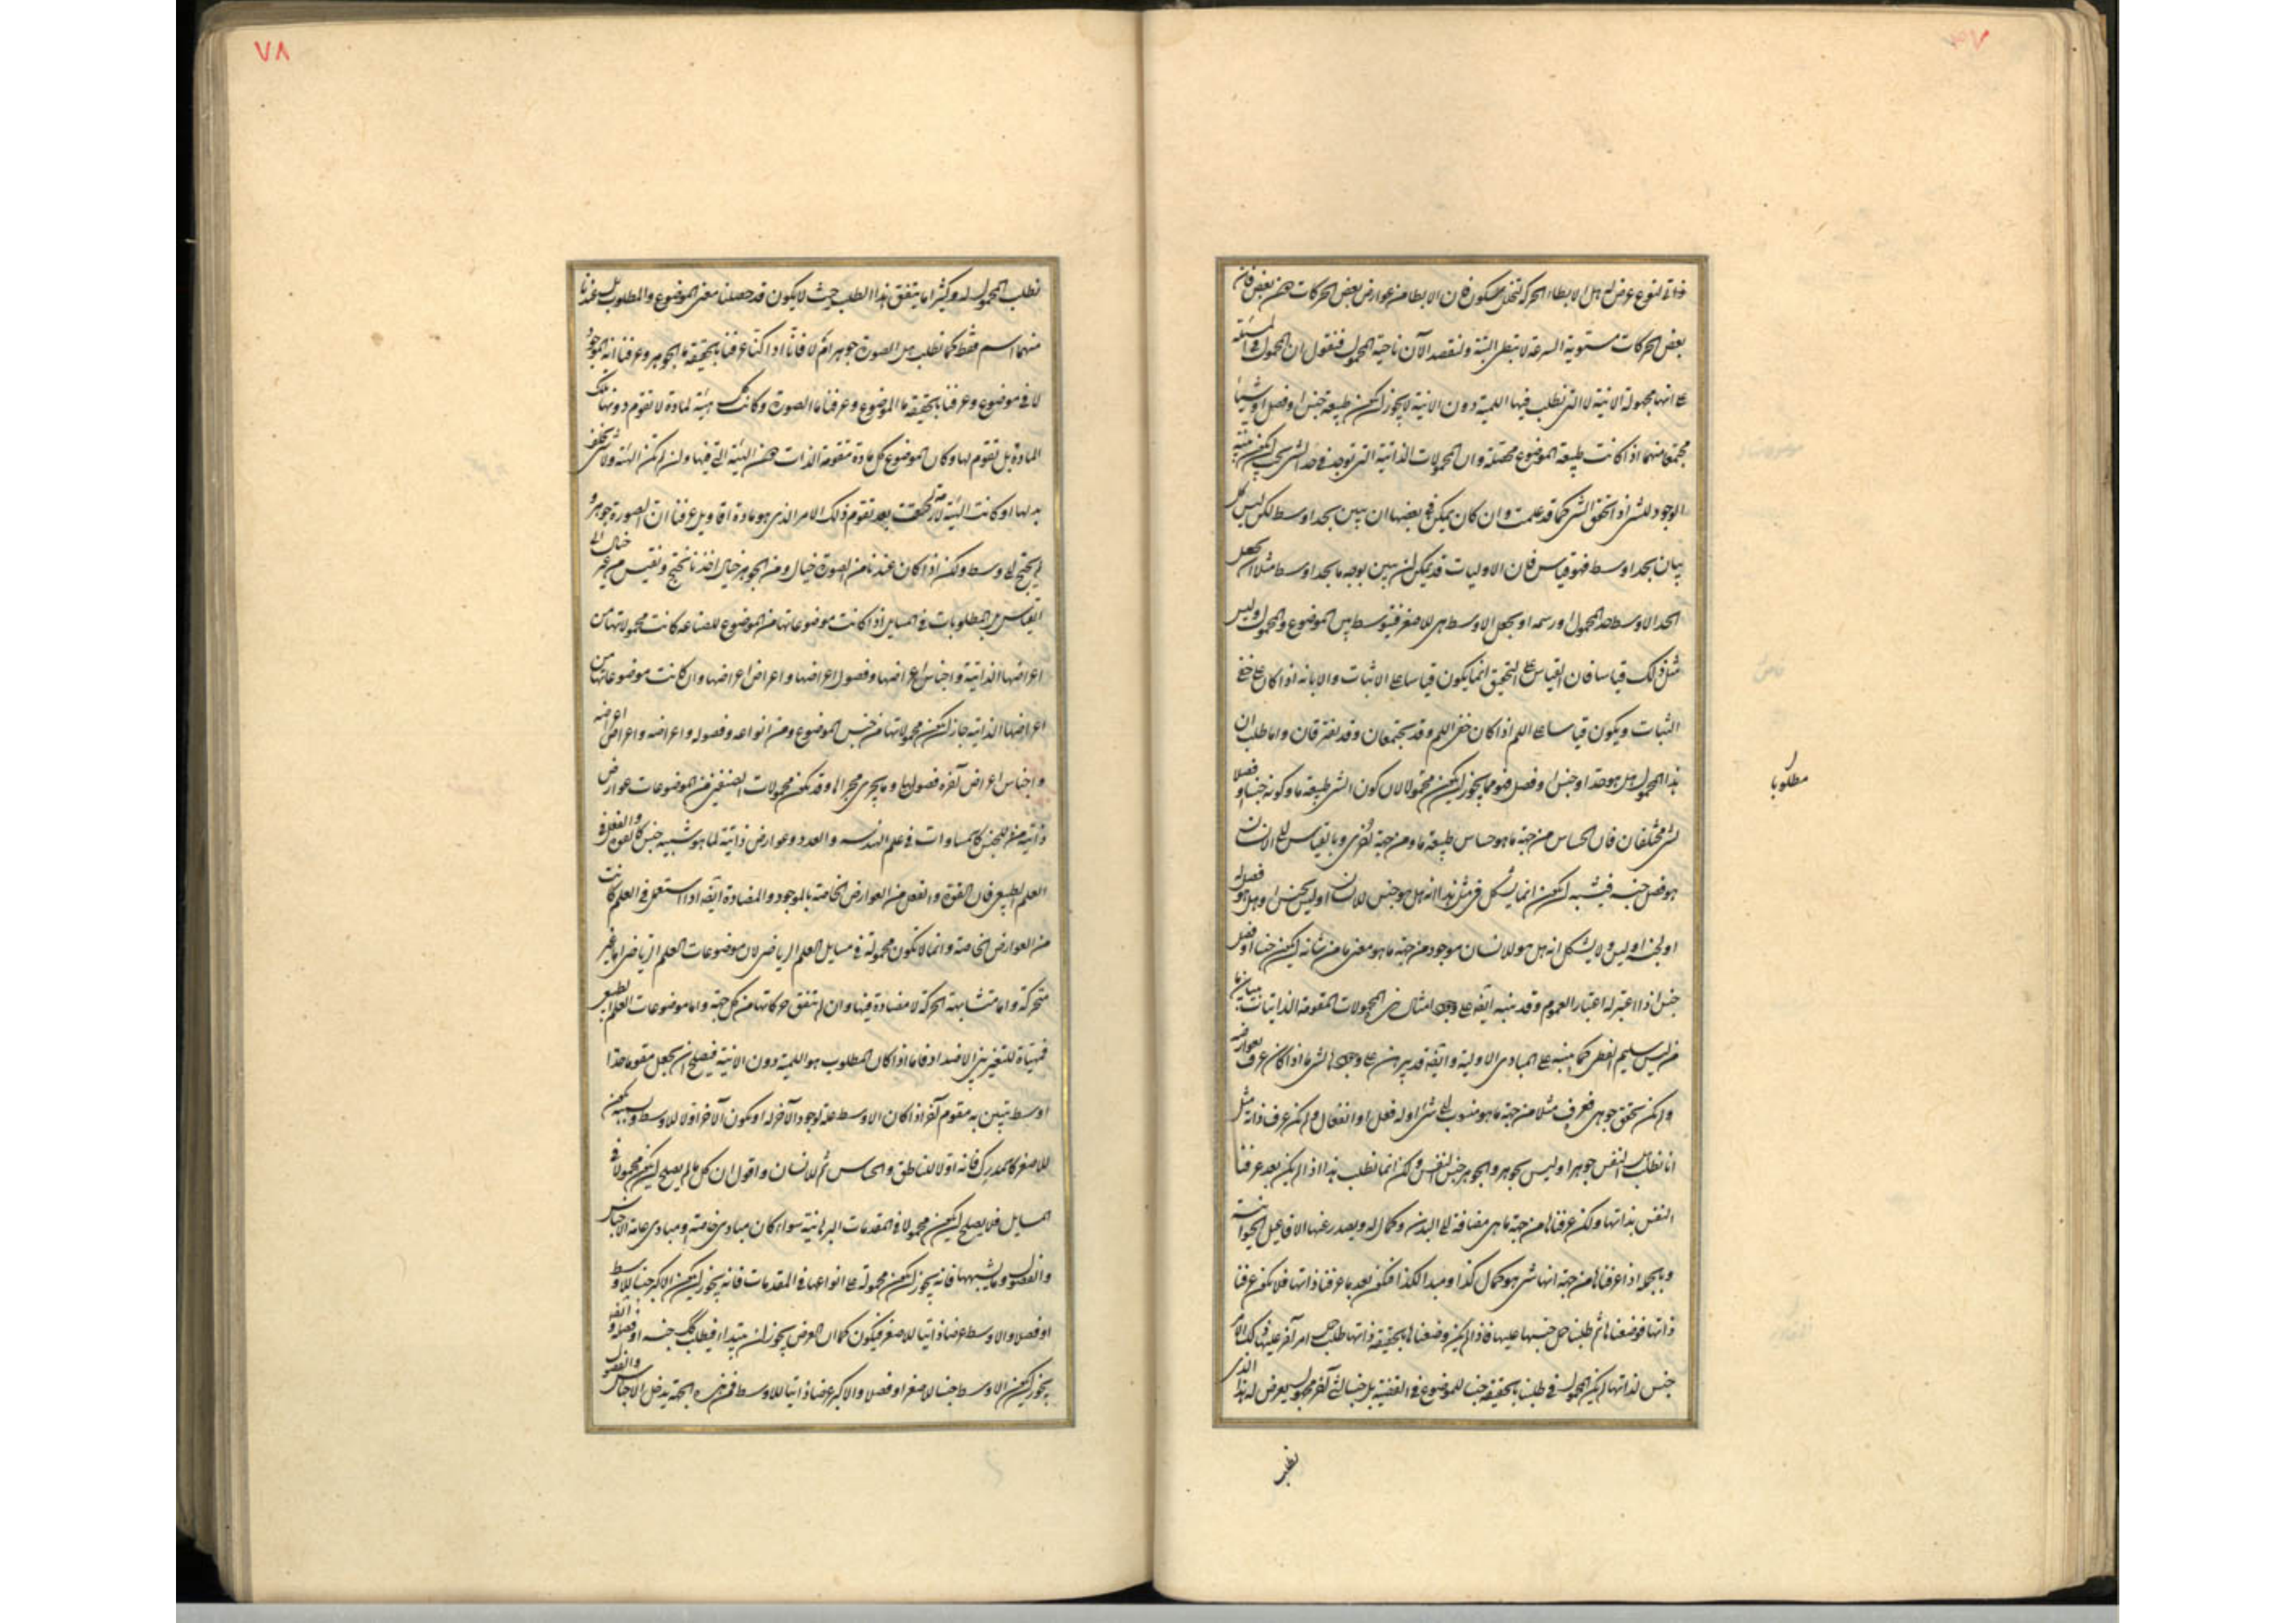 ذاتي لنوع عرض له هل الابطاء الحركة تخلل سكون فان الابطا من عوارض بعض الحركات هن بعض فان
بعض الحركات مستوية السرعة لا تبطئ البتة ولنقصد الآن ناحية المحمول فنقول ان المحمول في المسئلة
على انها مجهولة الانية لا التي نطلب فيها اللمية دون الانية لا يجوز ان يكون طبيعة جنس او فصل او شيئا
مجتمعا منهما اذا كانت طبيعة الموضوع محصلة وان المحمولات الذاتية التي توجد في حد الشئ يجب ان يكون بينة
الوجود للشئ اذ اتحقق الشئ كما قد علمت وان كان يمكن في بعضها ان يبين بحد اوسط لكن ليس كل
بيان بحد اوسط فهو قياس فان الاوليات قد يمكن ان يبين بوجه ما بحد اوسط مثلا ان يجعل
الحد الاوسط حد المحمول او رسمه او يجعل الاوسط للاصغر فيتوسط بين الموضوع والمحمول وليس
مثل ذلك قياسا فان القياس على التحقيق انما يكون قياسا على الاثبات والابانة اذا كان على خفي
الثبات ويكون قياسا على اللم اذا كان خفي اللم وقد يجتمعان وقد يفترقان واما طلب ان
هذا المحمول هل هو حد او جنس او فصل فهو مما يجوز ان يكون لان كون الشئ طبيعة ما وكونه جنسا او فصلا
مطلوبا
لشئ مختلفان فان الحساس من جهة ما هو حساس طبيعة ما ومن جهة اخرى وبالقياس الى الانسان
هو فصل جنسه فيشبه ان يكون انما يشكل في مثل هذا انه هل هو جنس للانسان او ليس بجنس او هل هو فصل له
او لجنسه او ليس ولا يشكل انه هل هو للانسان موجود من جهة ما هو معنى ما من شانه ان يكون جنسا او فصل
جنس اذا اعتبر له اعتبار العموم وقد ينبه ايضا على وجود امثال هذه المحمولات المقومة الذاتيات بيان ما
من ليس سليم الفطرة كما ينبه على المبادى الاولية وايضا قد يبرهن على وجودها لشئ ما اذا كان عرف بعوارضه
ولم يكن تحقق جوهره فعرف مثلا من جهة ما هو منسوب الى شئ او له فعل او انفعال ولم يكن عرف ذاته مثل
انا نطلب هل النفس جوهر او ليس بجوهر والجوهر جنس النفس ولكن انما نطلب هذا اذ لم يكن بعد عرفنا
النفس بذاتها ولكن عرفناها من جهة ما هي مضافة الى البدن وكمال له ويصدر عنها الافاعيل الحيوانية
وبالجملة اذا عرفناها من جهة انها شئ هو كمال كذا ومبدا لكذا فنكون بعد ما عرفنا ذاتها فلا نكون عرفنا
ذاتها فوضعناها ثم طلبنا حمل جنسها عليها فاذ لم يكن وضعناها بالحقيقة ذاتها طلب حمل امر آخر عليها ذلك الامر
جنس لذاتها لم يكن المحمول في طلبنا بالحقيقة جنسا للموضوع في القضية بل جنسا لشئ آخر مجهول يعرض له هذا الذي
نطلب
٧٨
نطلب المحمول له وكثيرا ما يتفق هذا الطلب حيث لا يكون قد حصلنا معنى الموضوع والمطلوب بل عندنا
منهما اسم فقط كما نطلب هل الصورة جوهر ام لا فانا اذا كنا عرفنا بالحقيقة ما الجوهر وعرفنا انه الموجود
لا في موضوع وعرفنا بالحقيقة ما الموضوع وعرفنا ما الصورة وكانت كل هيئة لمادة لا تقوم دونها تلك
المادة بل تقوم بها وكان الموضوع كل مادة متقومة الذات هذه الهيئة التي فيها وان لم تكن الهيئة ولا شئ يخلف
بدلها او كانت الهيئة لازمة لحقت بعد تقوم ذلك الامر الذي هو مادة اقاويل عرفنا ان الصورة جوهر و
لم يحتج الى وسط ولكن اذا كان عندنا من الصورة خيال ومن الجوهر خيال اخذنا نحتج ونقيس من غير خيال الى
القياس والمطلوبات في المسايل اذا كانت موضوعاتها من الموضوع للصناعة كانت محمولاتها من
اعراضها الذاتية واجناس اعراضها وفصول اعراضها واعراض اعراضها وان كانت موضوعاتها من
اعراضها الذاتية جاز ان يكون محمولاتها من جنس الموضوع ومن انواعه وفصوله واعراضه واعراض اعراضه
واجناس اعراض آخره فصولها وما يجري مجراها وقد يكون محمولات الصنفين من الموضوعات عوارض
ذاتية للجنس كالمساوات في علم الهندسة والعدد وعوارض ذاتية لما هو شبيه جنس كالقوة والفعل في
العلم الطبيعي فان القوة والفعل من العوارض الخاصة بالموجود والمضادة ايضا اذا استعمل في العلم كانت
من العوارض الخاصة وانما لا تكون محمولة في مسايل العلم الرياضي لان موضوعات العلم الرياضي اما غير
متحركة واما متشابهة الحركة لا مضادة فيها وان لم تتفق حركاتها من كل جهة واما موضوعات العلم الطبيعي
فمهيأة للتغير بين الاضداد فاما اذا كان المطلوب هو اللمية دون الانية فيصلح ان يجعل مقوما حدا
اوسط يتبين به مقوم آخر اذا كان الاوسط علة لوجود الآخر له او يكون الآخر اولا للاوسط وبسببه يكون
للاصغر كالمدرك فانه اولا للناطق والحساس ثم للانسان واقول ان كل ما لم يصلح ان يكون محمولا في
المسايل فلا يصلح ان يكون محمولا في المقدمات البرهانية سواء كان مبادى خاصة او مبادى عامة الا اجناس
والفصول وما يشبهها فانه يجوز ان يكون محمولة على انواعها في المقدمات فانه يجوز ان يكون الاكبر جنسا للاوسط
او فصلا والاوسط عرضا ذاتيا للاصغر فيكون كما ان العرض يجوز ان يبتدأ فيطلب جنسه او فصله وايضا
يجوز ان يكون الاوسط جنسا للاصغر او فصلا والاكبر عرضا ذاتيا للاوسط فمن هذه الجهة يدخل الاجناس والفصول